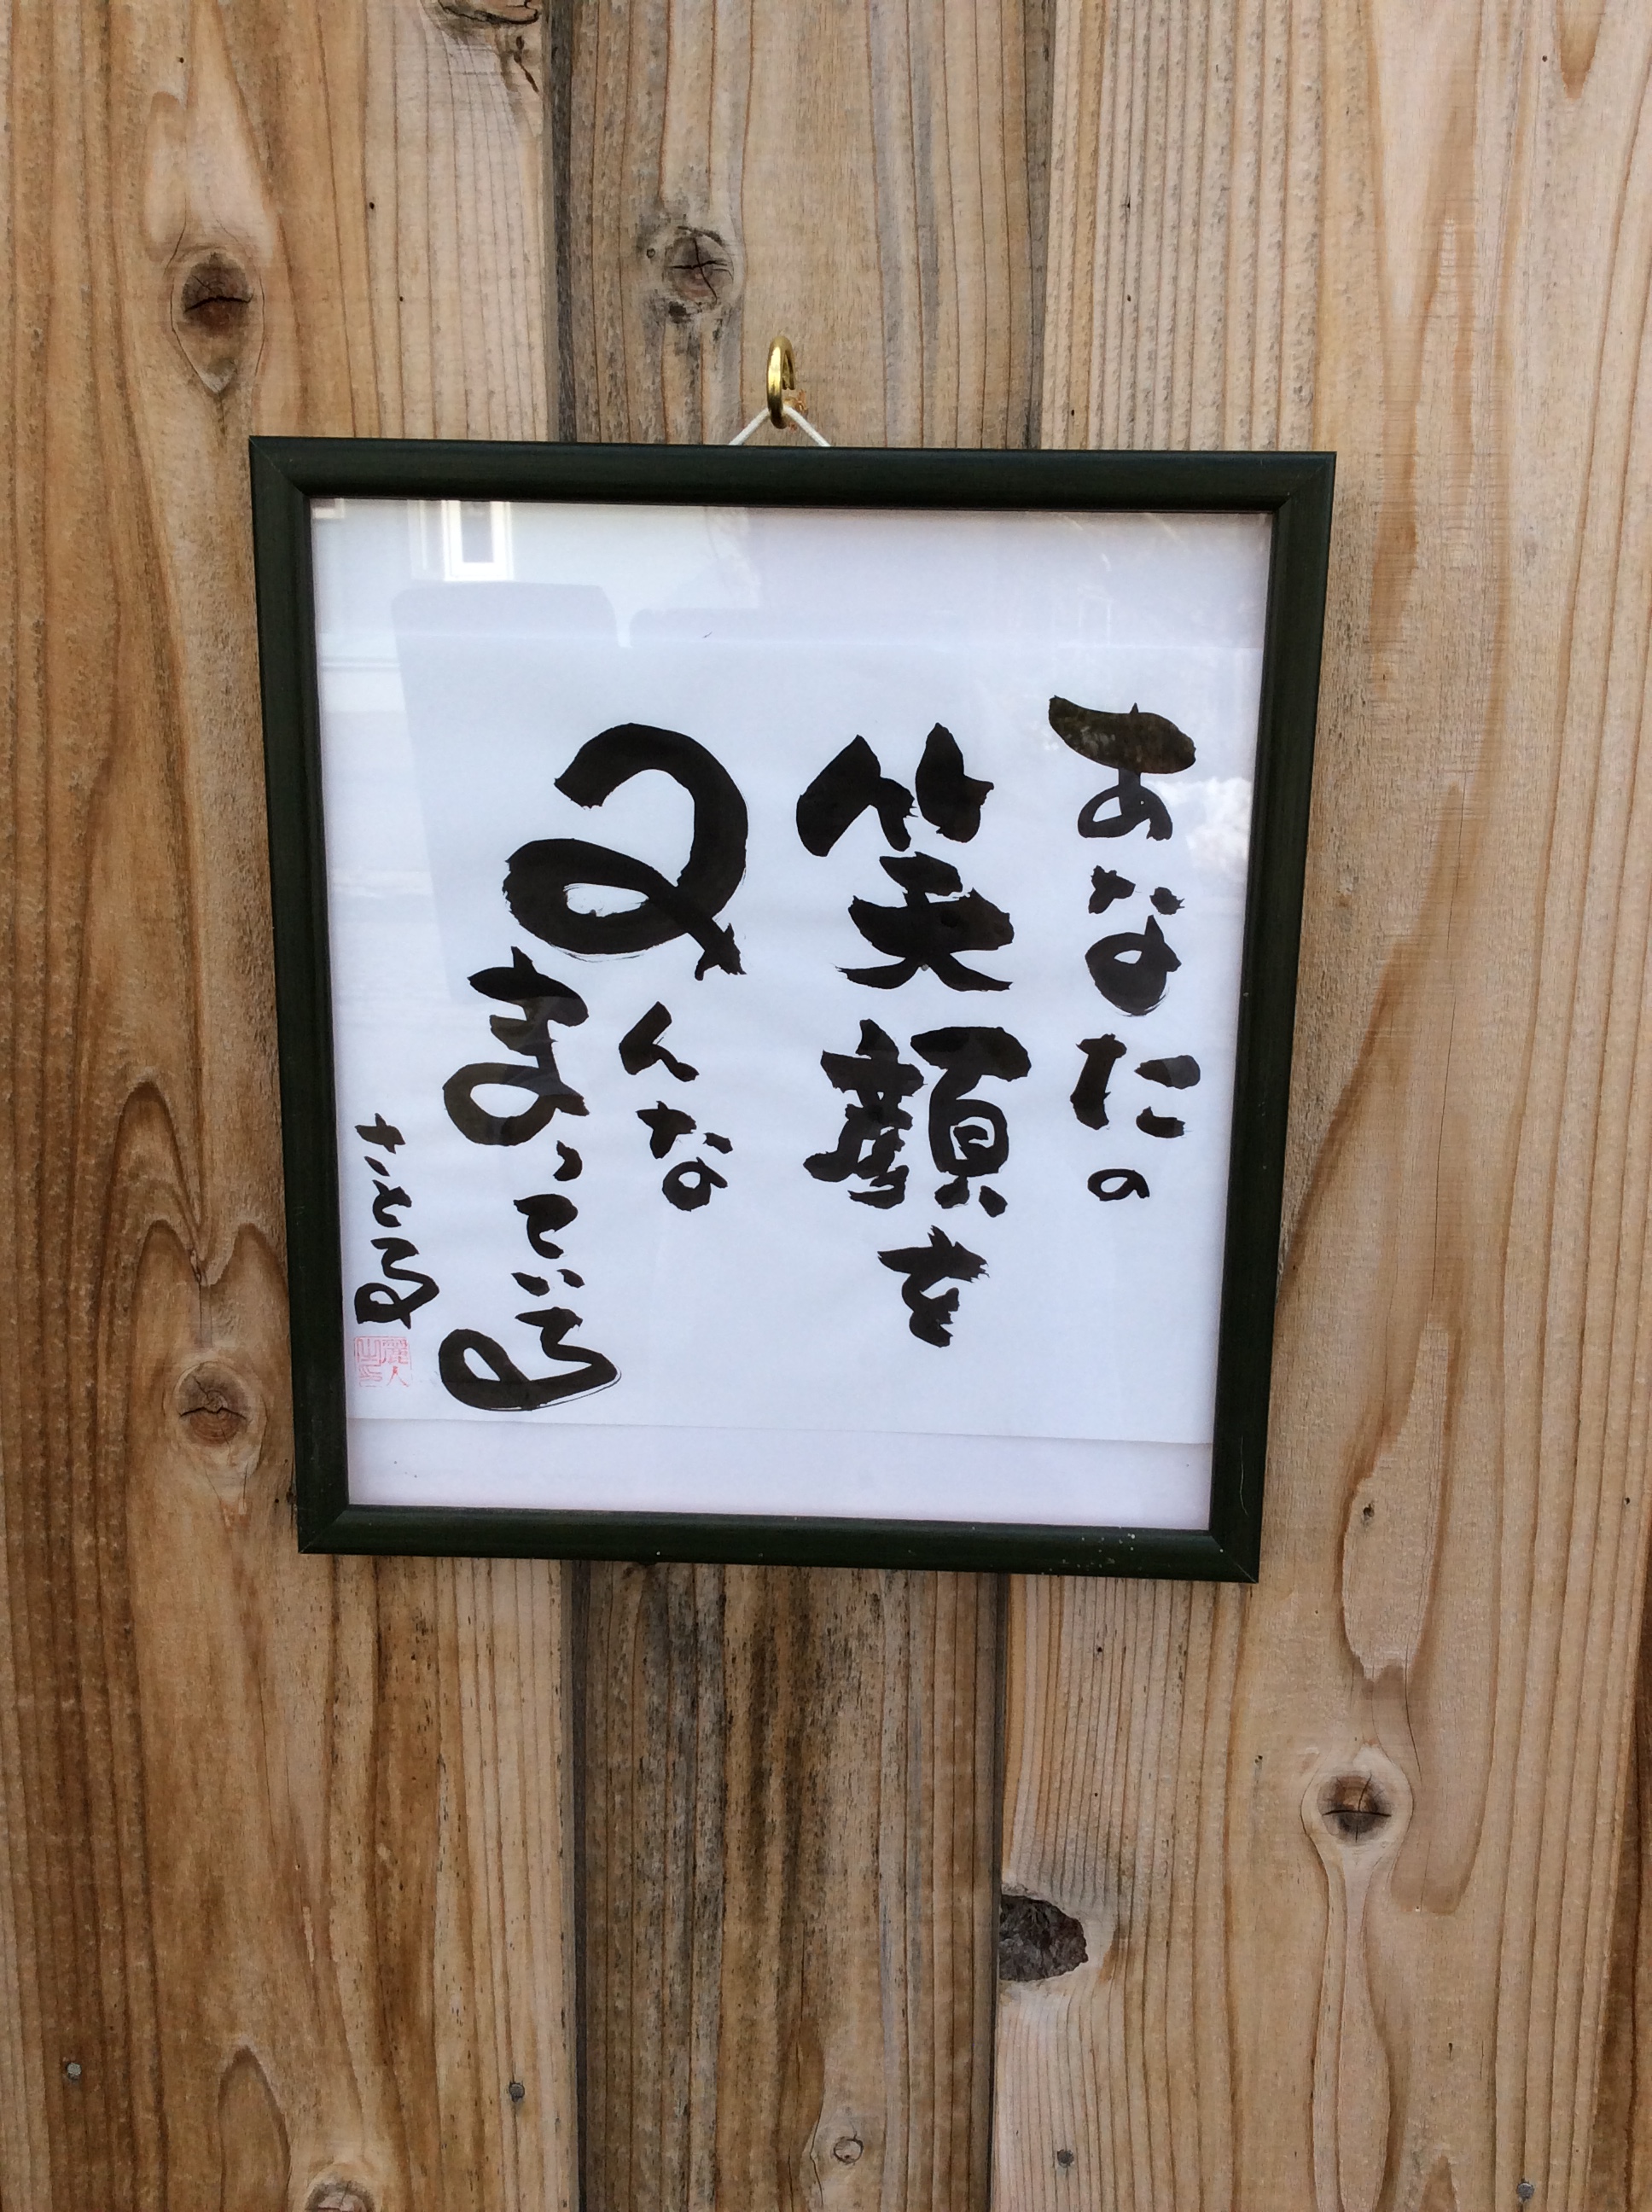 あなたの
笑顔を
みんな
まっている
さとる